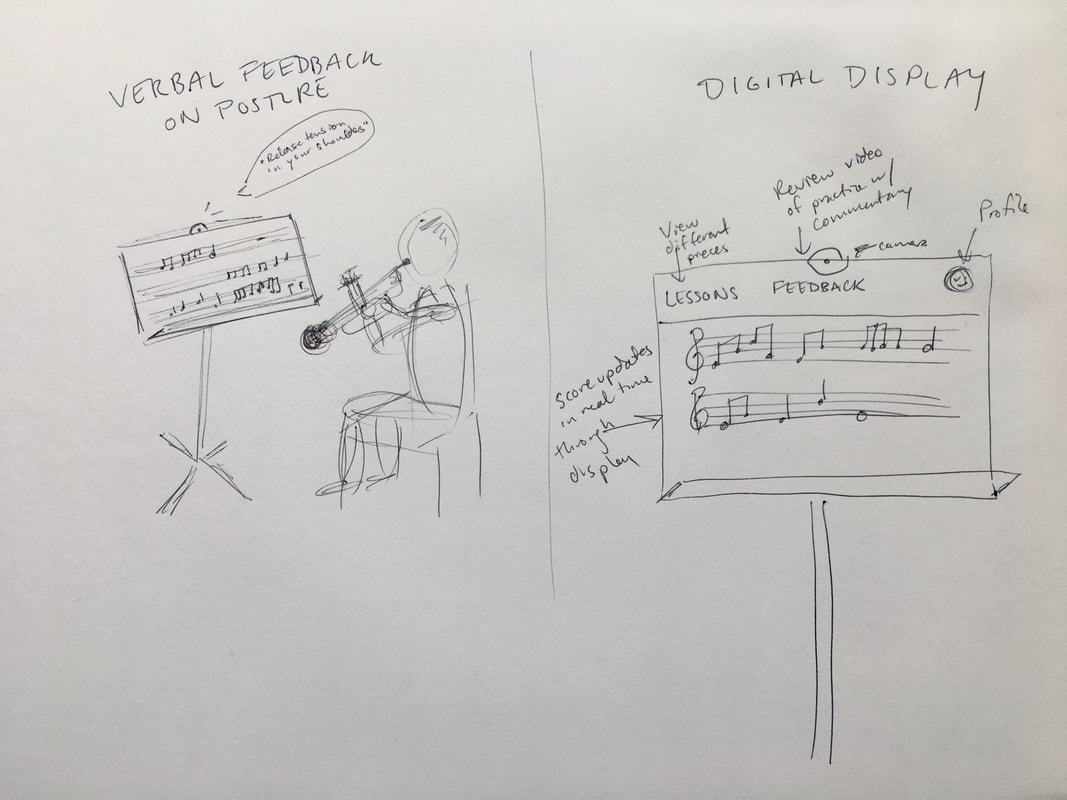 VERBAL FEEDBACK
ON POSTURE
"Release tension
in your shoulders"
DIGITAL DISPLAY
View
different
pieces
Review video
of practice w/
commentary
camera
Profile
LESSONS FEEDBACK
Score updates
in real time
through
display